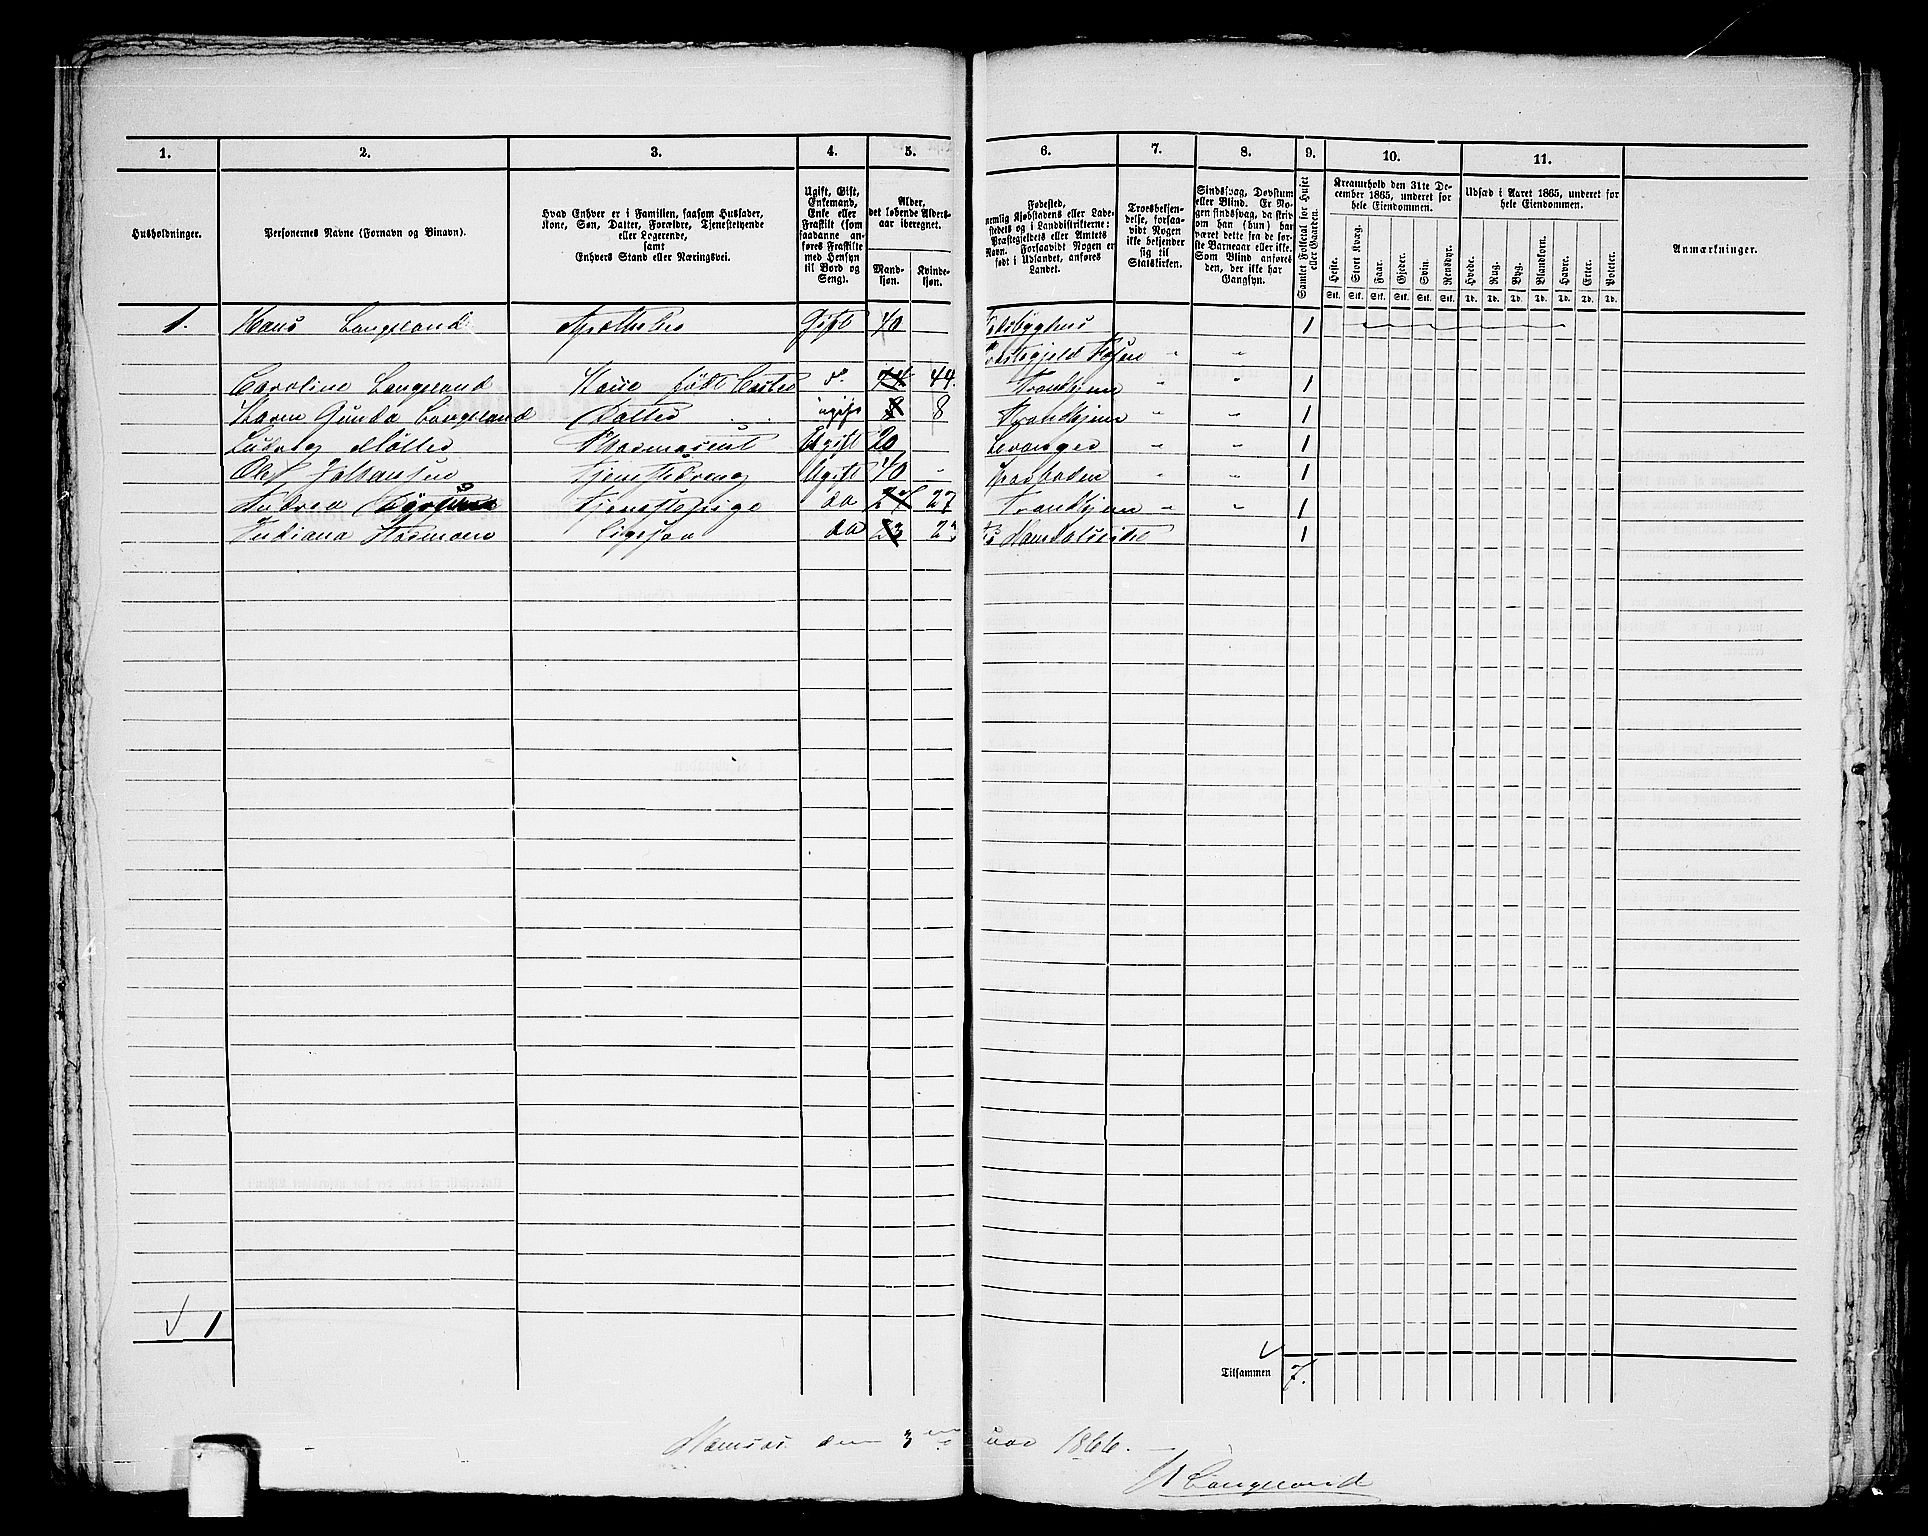 1. 2. 3. 4. 5. 6. 7. 8. 9. 10. 11.
Husholdninger.
Personernes Navne (Fornavn og Binavn).
Hvad Enhver er i Familien, saasom Husfader,
Kone, Søn, Datter, Forældre, Tjenestetyende
eller Logerende,
samt
Enhvers Stand eller Næringsvei.
Ugift, Gift,
Enkemand,
Enke eller
Fraskilt (som
saadanne an-
føres Fraskilte
med Hensyn
til Bord og
Seng).
Alder,
det løbende Alders-
aar iberegnet.
Mand-
kjøn.
Kvinde-
kjøn.
Fødested,
nemlig Kjøbstadens eller Lade-
stedets og i Landdistrikterne:
Præstegjeldets eller Amtets
Navn. Forsaavidt Nogen er
født i Udlandet, anføres
Landet.
Troesbekjen-
delse, forsaa-
vidt Nogen
ikke bekjender
sig til
Statskirken.
Sindssvag, Døvstum
eller Blind. Er No-
gen sindssvag, da skriv
om han (hun) har
været dette fra de før-
ste Barneaar eller ikke.
Som Blind anføres
den, der ikke har
Gangsyn.
Samlet Folketal for Huset
eller Gaarden.
Kreaturhold den 31te De-
cember 1865, underet for
hele Eiendommen.
Heste. Stort Kvæg. Faar. Gjeder. Svin. Rensdyr.
Stk. Stk. Stk. Stk. Stk. Stk.
Udsæd i Aaret 1865, underet for
hele Eiendommen.
Hvede. Rug. Byg. Blandkorn. Havre. Erter. Poteter.
Td. Td. Td. Td. Td. Td. Td.
Anmærkninger.
1. Hans Langeland Apotheker Gift 40 1
Caroline Langeland Kone født do 44 44. Trondhjem " " 1
Karen Gunda Langeland Datter ugift 8 8 Trondhjem " " 1
Ludvig Møller Ugift 20 Levanger " " 1
Olef Johansen Ugift 40 " " 1
Andrea Tjenestepige do 27 27 Trondhjem " " 1
Indiana ligesaa do 23 23 1
1
Tilsammen 7.
Namsos den 3 uar 1866.
H Langeland